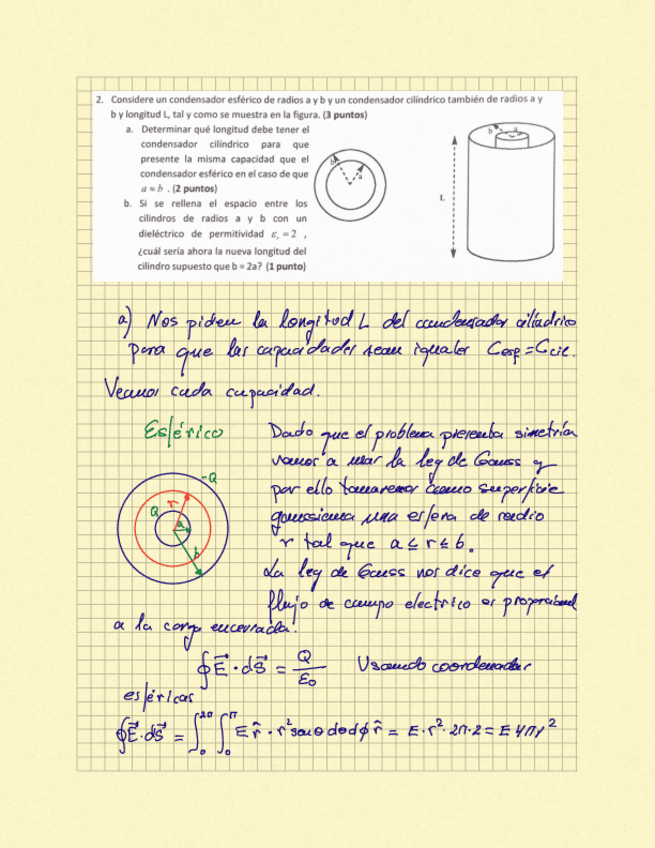 2. Considere un condensador esférico de radios a y b y un condensador cilíndrico también de radios a y
b y longitud L, tal y como se muestra en la figura. (3 puntos)
a. Determinar qué longitud debe tener el
condensador cilíndrico para que
presente la misma capacidad que el
condensador esférico en el caso de que
a ≈ b . (2 puntos)
b. Si se rellena el espacio entre los
cilindros de radios a y b con un
dieléctrico de permitividad εr = 2 ,
¿cuál sería ahora la nueva longitud del
cilindro supuesto que b = 2a? (1 punto)
b
a
L
b
a
a) Nos piden la longitud L del condensador cilíndrico
para que las capacidades sean iguales Cesf = Ccil.
Veamos cada capacidad.
Esférico
Dado que el problema presenta simetría
vamos a usar la ley de Gauss y
por ello tomaremos como superficie
gaussiana una esfera de radio
r tal que a ≤ r ≤ b.
La ley de Gauss nos dice que el
flujo de campo electrico es proporcional
a la carga encerrada.
-Q
Q
r
a
b
∮E⃗·dS⃗ = Q/ε₀ Usando coordenadas
esféricas
∮E⃗·dS⃗ = ∫₀^2π ∫₀^π E r̂ · r² senθ dθ dϕ r̂ = E·r²·2π·2 = E 4πr²